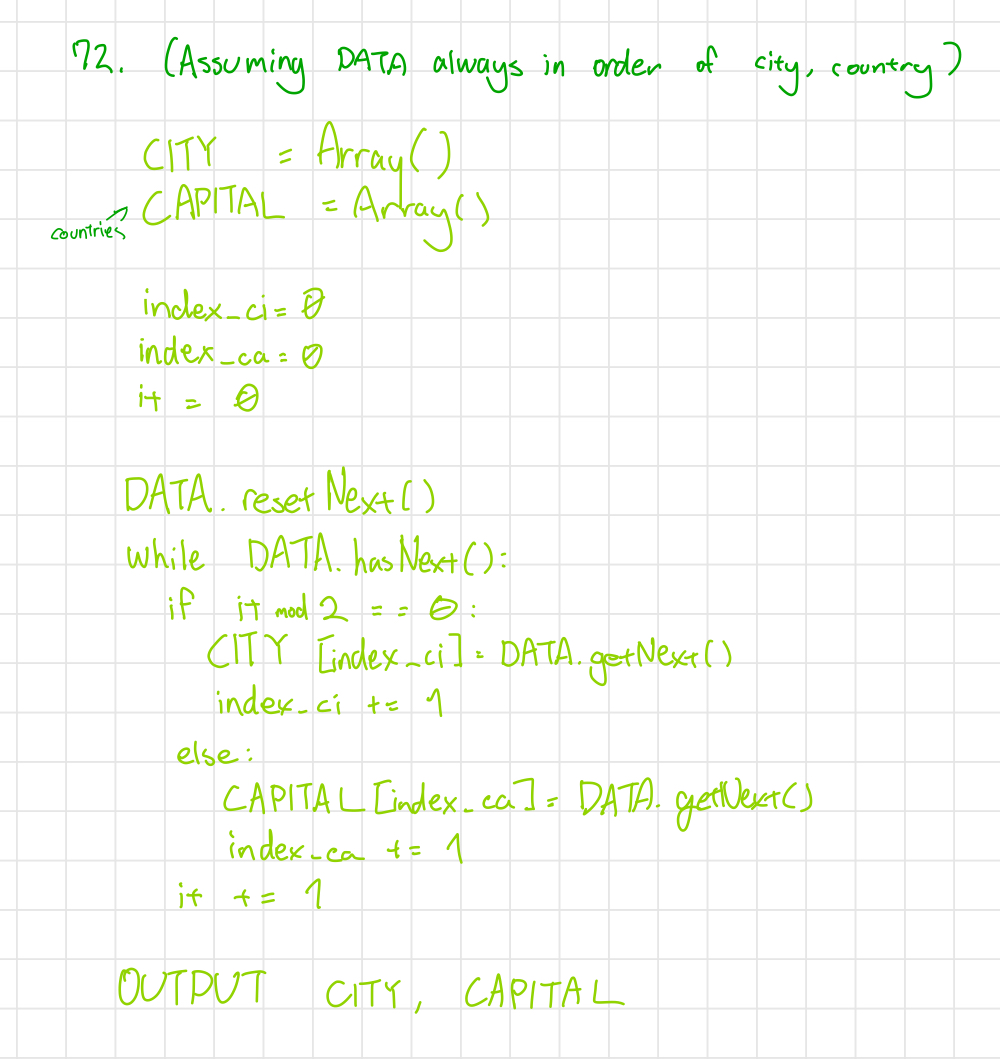 72. (Assuming DATA always in order of city, country)
CITY = Array()
CAPITAL = Array()
countries
index_ci = 0
index_ca = 0
it = 0
DATA.resetNext()
while DATA.hasNext():
if it mod 2 == 0:
CITY [index_ci] = DATA.getNext()
index_ci += 1
else:
CAPITAL [index_ca] = DATA.getNext()
index_ca += 1
it += 1
OUTPUT CITY, CAPITAL